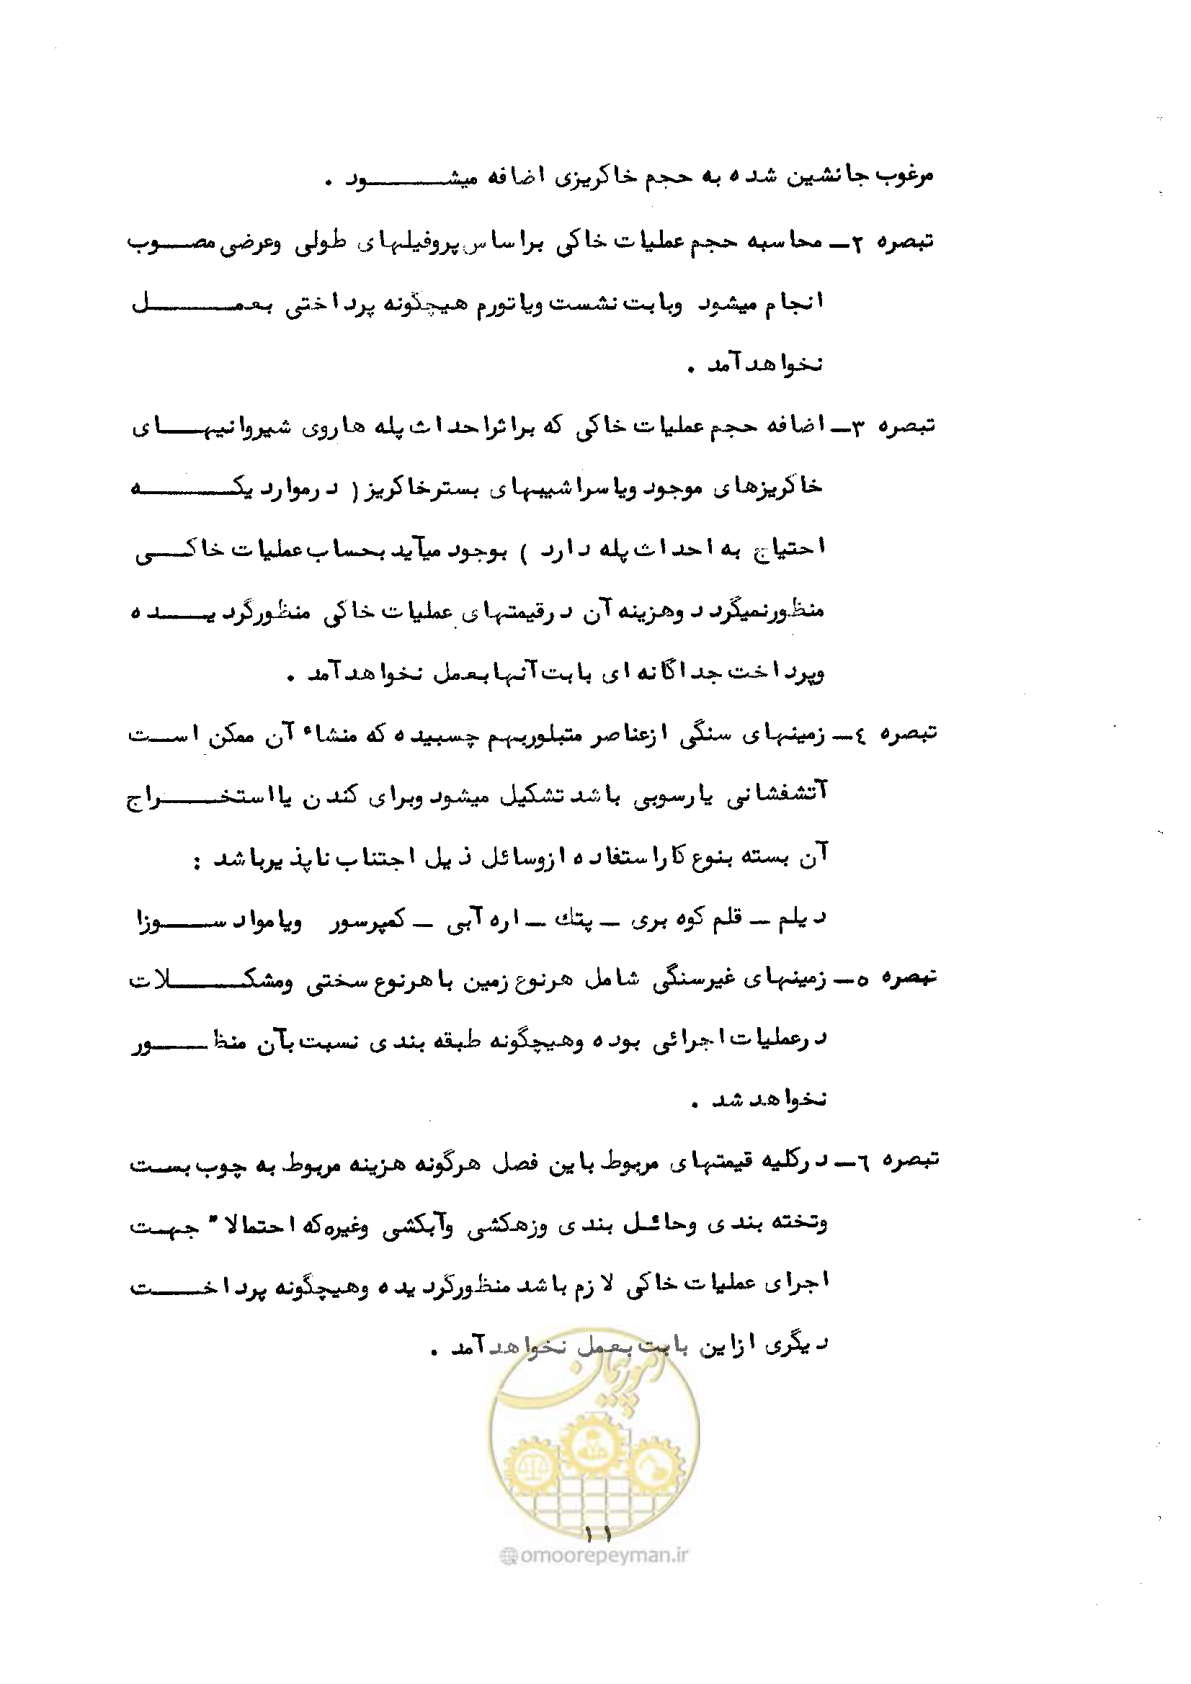 مرغوب جانشین شده به حجم خاکریزی اضافه میشود .
تبصره ۲ـ محاسبه حجم عملیات خاکی براساس پروفیلهای طولی وعرضی مصوب
انجام میشود وبابت نشست ویاتورم هیچگونه پرداختی بعمل
نخواهدآمد .
تبصره ۳ـ اضافه حجم عملیات خاکی که براثراحداث پله هاروی شیروانیهای
خاکریزهای موجود ویاسراشیبهای بسترخاکریز ( درمواردیکه
احتیاج به احداث پله دارد ) بوجود میآید بحساب عملیات خاکی
منظورنمیگردد وهزینه آن درقیمتهای عملیات خاکی منظورگردیده
وپرداخت جداگانه ای بابت آنهابعمل نخواهدآمد .
تبصره ٤ـ زمینهای سنگی ازعناصر متبلوربهم چسبیده که منشاء آن ممکن است
آتشفشانی یارسوبی باشدتشکیل میشود وبرای کندن یااستخراج
آن بسته بنوع کاراستفاده ازوسائل ذیل اجتناب ناپذیرباشد :
دیلم ـ قلم کوه بری ـ پتك ـ اره آبی ـ کمپرسور ویامواد سوزا
تبصره ٥ـ زمینهای غیرسنگی شامل هرنوع زمین باهرنوع سختی ومشکلات
درعملیات اجرائی بوده وهیچگونه طبقه بندی نسبت بآن منظور
نخواهدشد .
تبصره ٦ـ درکلیه قیمتهای مربوط باین فصل هرگونه هزینه مربوط به چوب بست
وتخته بندی وحائل بندی وزهکشی وآبکشی وغیره که احتمالا" جهت
اجرای عملیات خاکی لازم باشد منظورگردیده وهیچگونه پرداخت
دیگری ازاین بابت بعمل نخواهدآمد .
امور پیمان
۱۱
@omoorepeyman.ir